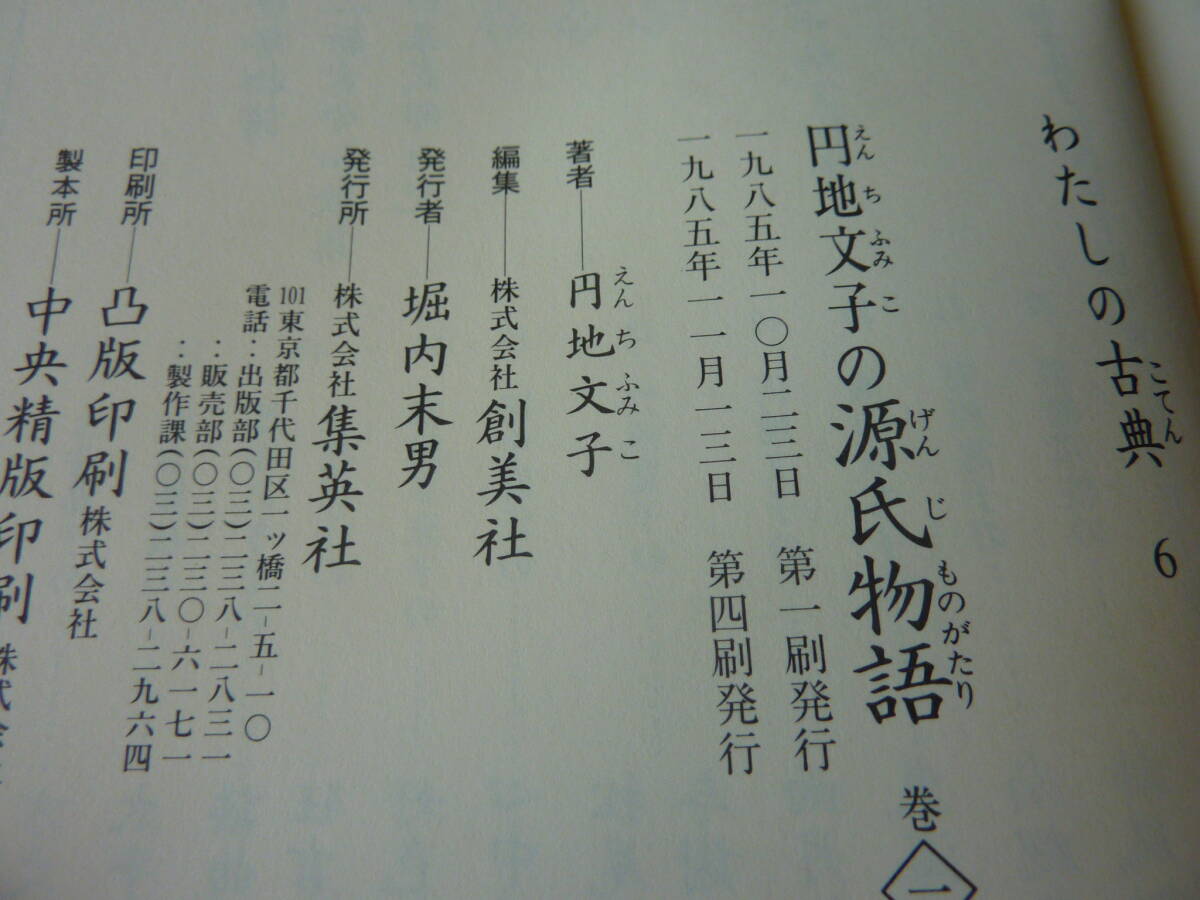 わたしの古典 6
円地文子の源氏物語 巻一
えんちふみこ げんじものがたり
一九八五年一〇月二三日 第一刷発行
一九八五年一一月一三日 第四刷発行
著者――円地文子
えんちふみこ
編集――株式会社 創美社
発行者――堀内末男
発行所――株式会社 集英社
101東京都千代田区一ツ橋二-五-一〇
電話:出版部(〇三)二三八-二八三一
:販売部(〇三)二三〇-六一七一
:製作課(〇三)二三八-二九六四
印刷所――凸版印刷株式会社
製本所――中央精版印刷株式会